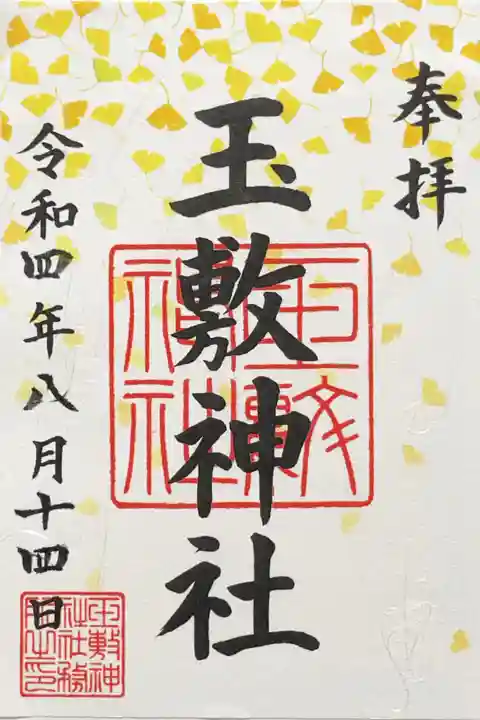 奉拝
玉敷神社
令和四年八月十四日
玉敷神社
玉敷神
社社務
所之印